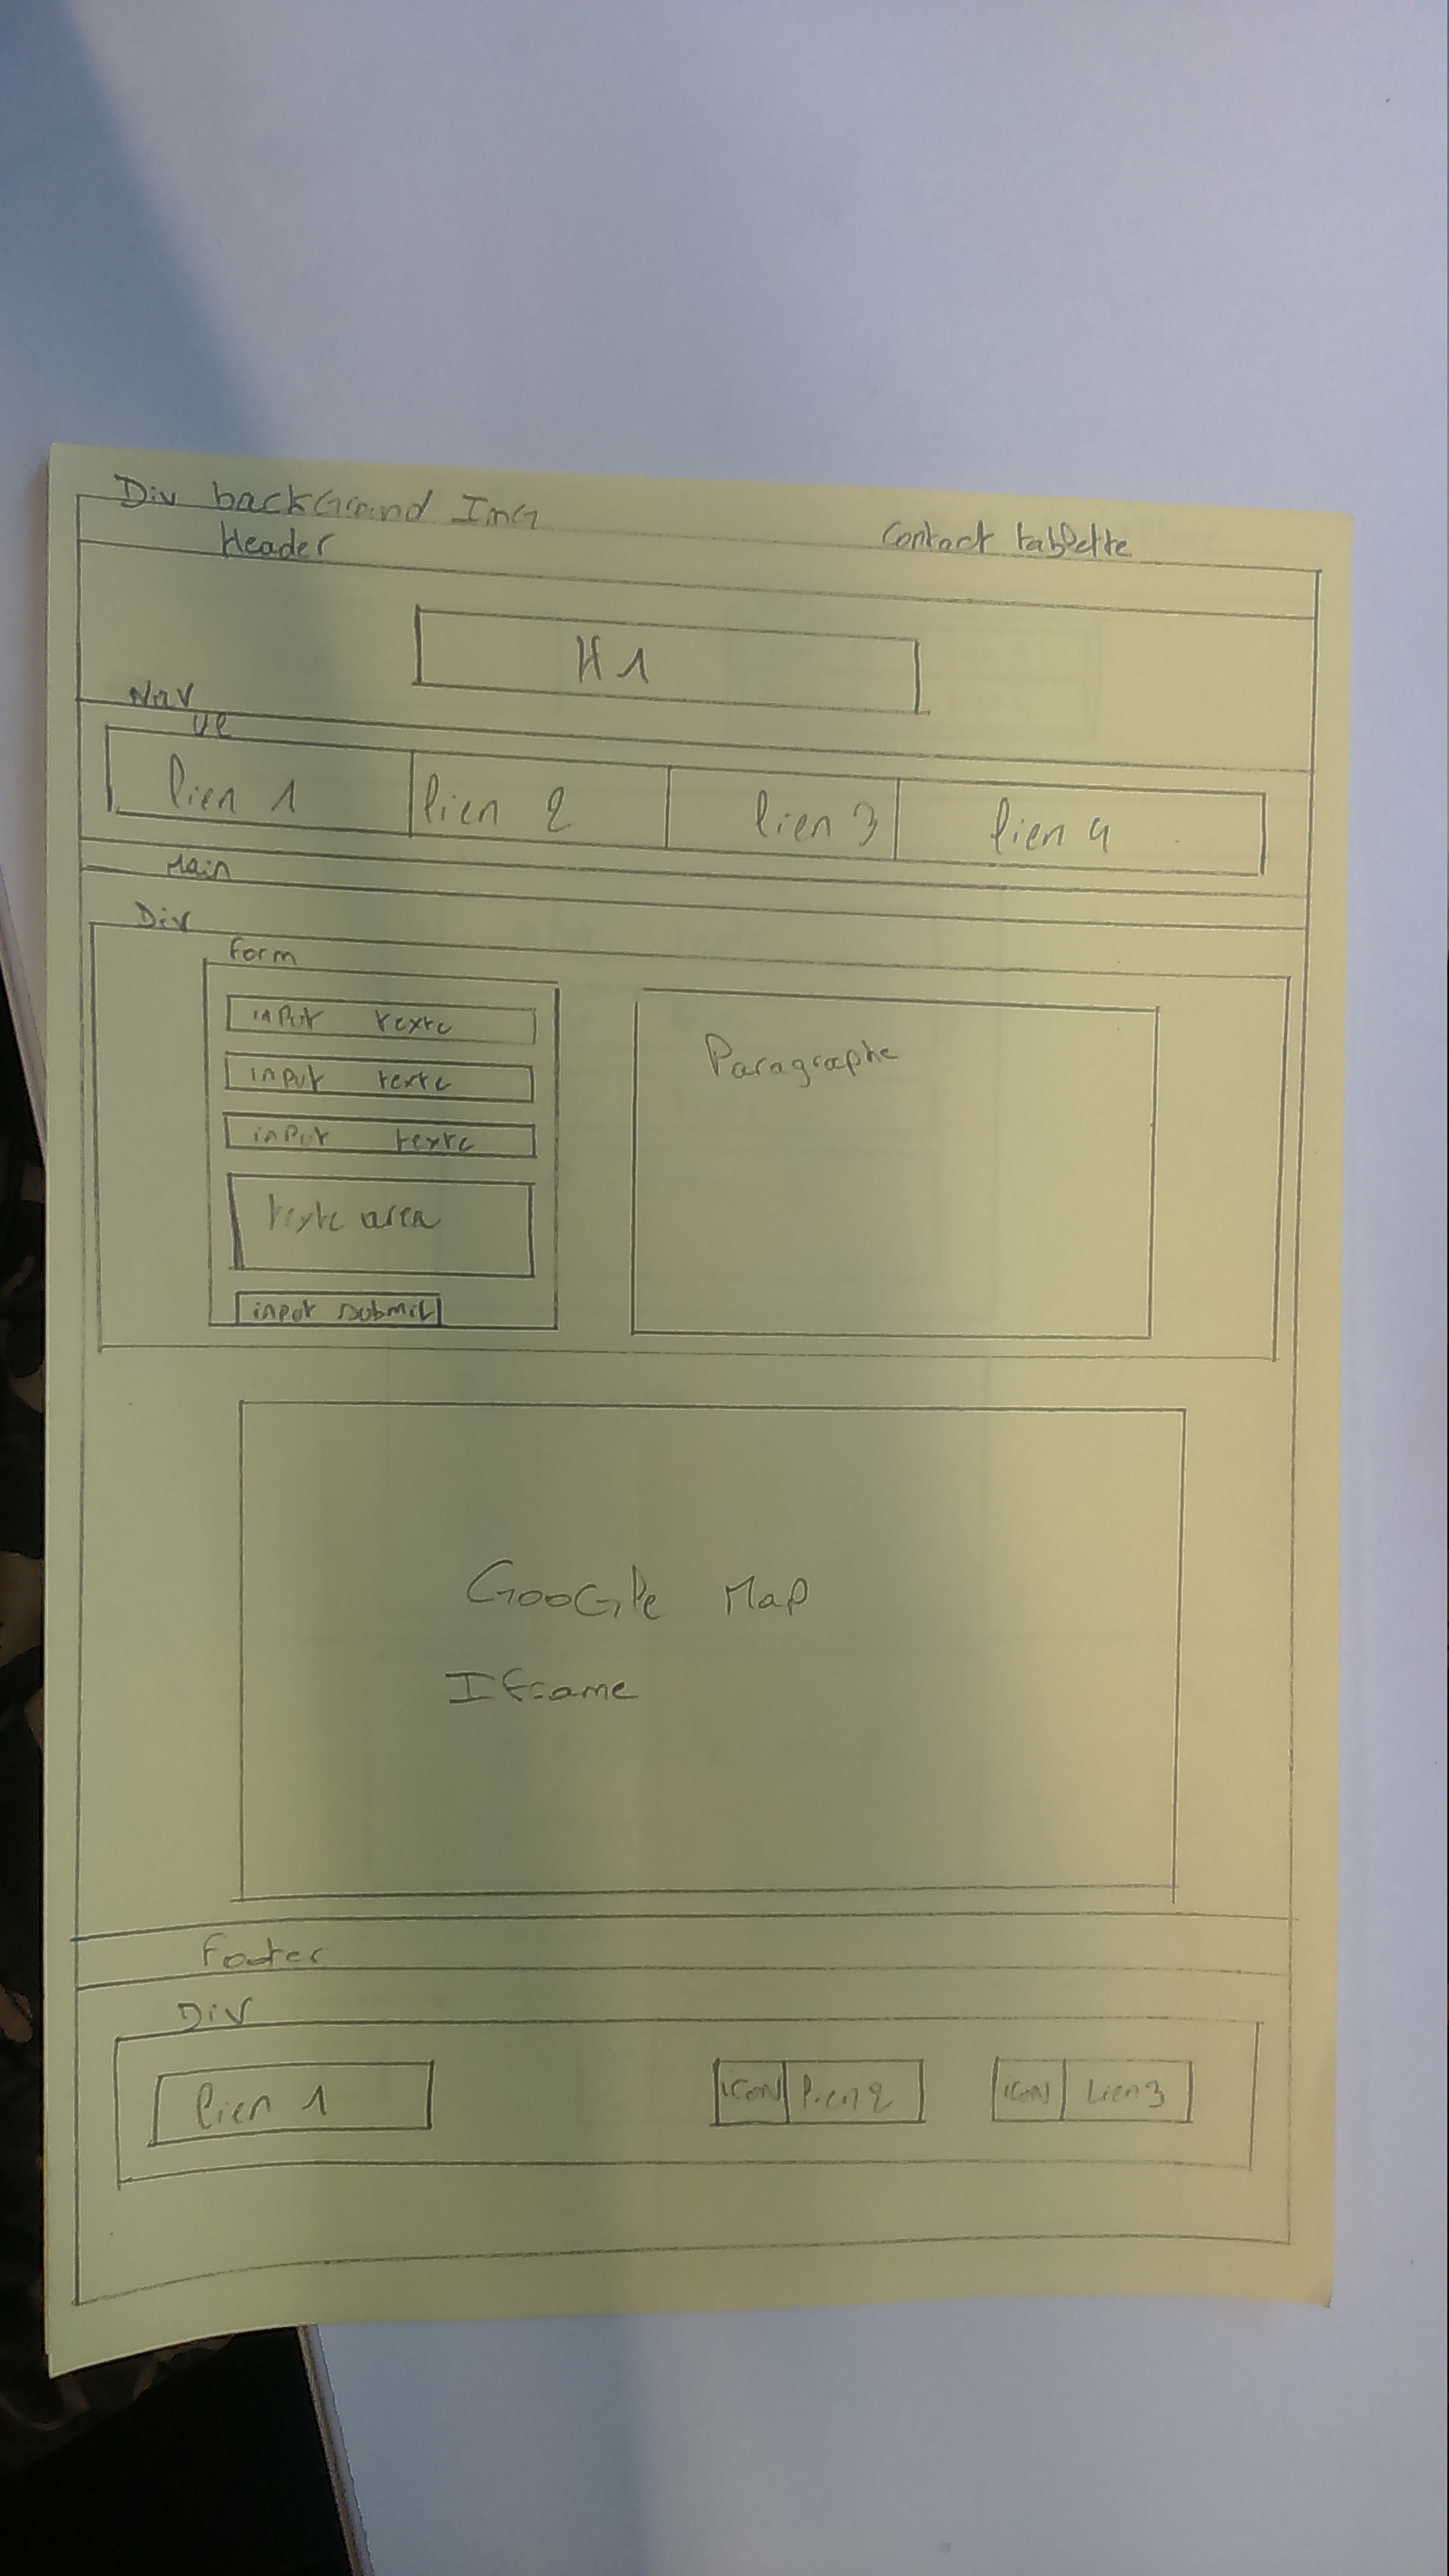 Div backGround ImG
Header
Contact tablette
H1
Nav
Ul
lien 1 lien 2 lien 3 lien 4
Main
Div
Form
input texte
input texte
input texte
texte area
input submit
Paragraphe
GooGle Map
Iframe
Footer
Div
lien 1 icon lien 2 icon Lien 3